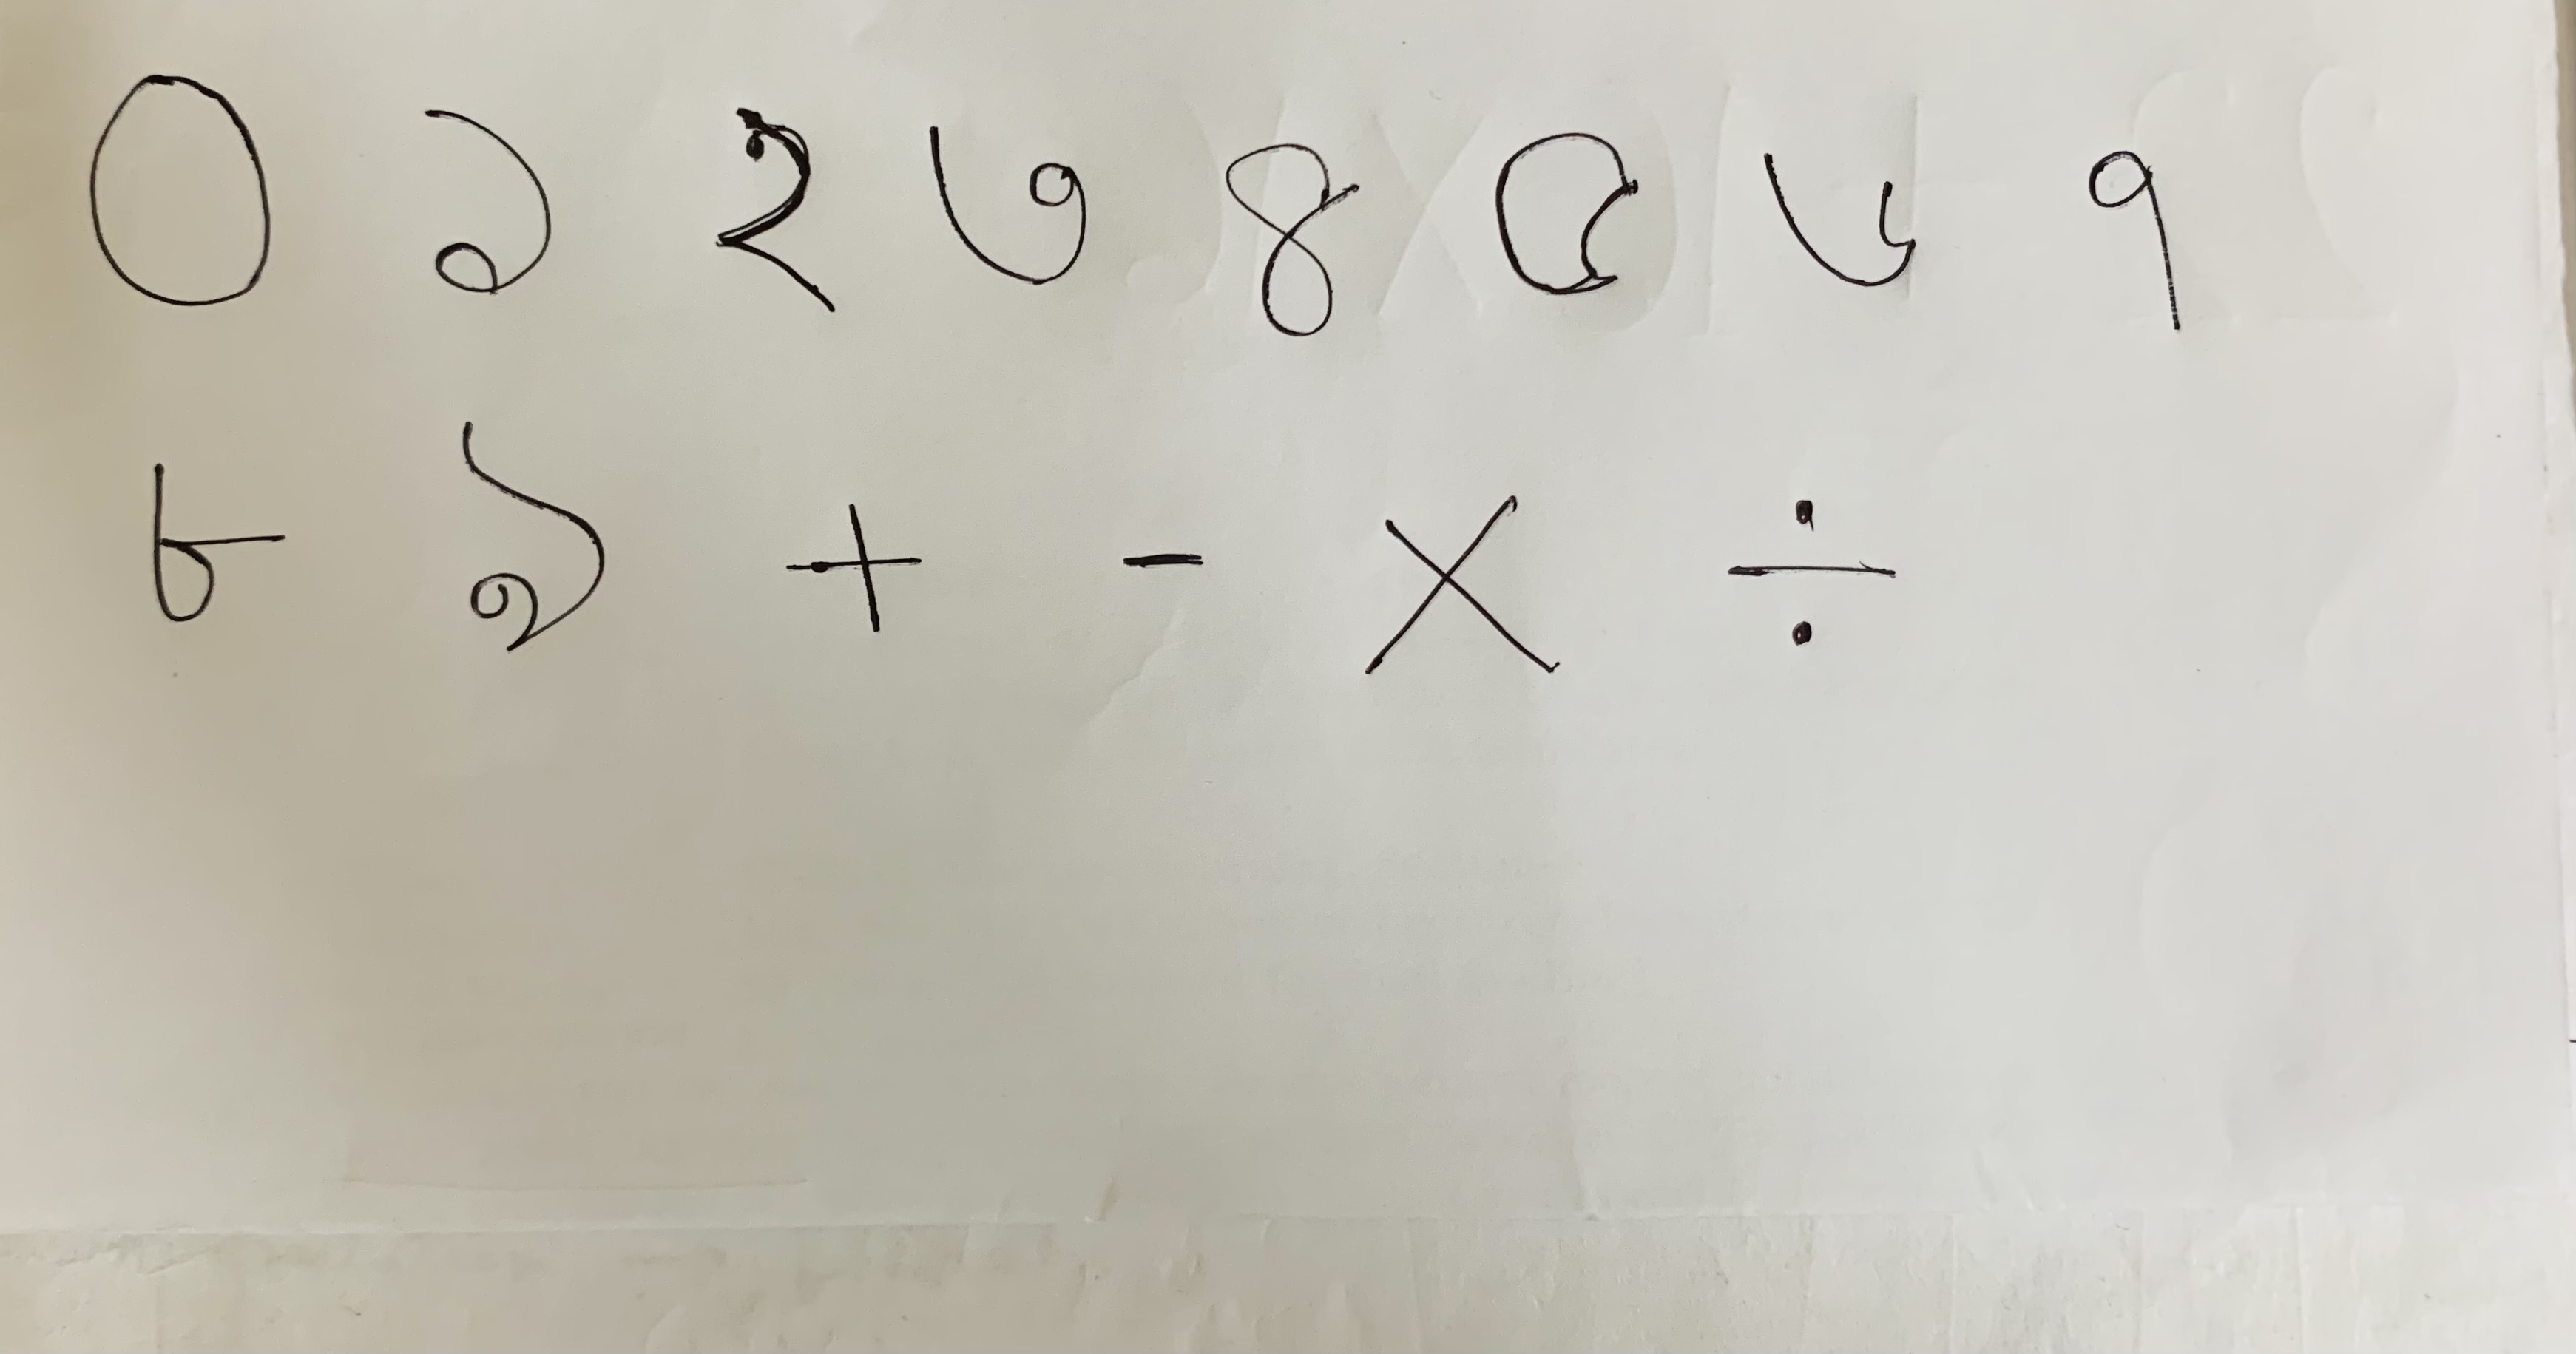 ০ ১ ২ ৩ ৪ ৫ ৬ ৭
৮ ৯ + - × ÷